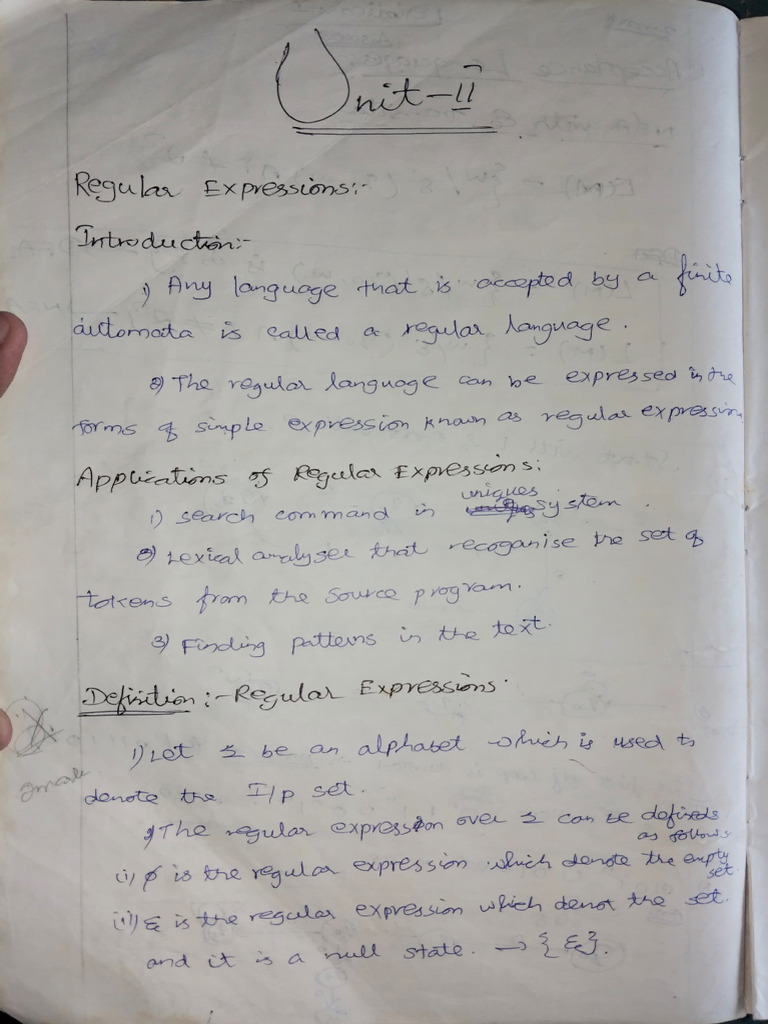 Unit-II
Regular Expressions:-
Introduction:-
1) Any language that is accepted by a finite
automata is called a regular language.
2) The regular language can be expressed in the
forms of simple expression known as regular expression
Applications of Regular Expressions:
uniques
1) search command in system.
2) Lexical analyser that recoganise the set of
tokens from the source program.
3) Finding patterns in the text.
Definition:- Regular Expressions.
1) Let Σ be an alphabet which is used to
denote the I/p set.
2) The regular expression over Σ can be defined
as follows
(i) φ is the regular expression which denote the empty
set.
(ii) ε is the regular expression which denot the set.
and it is a null state. → {ε}.